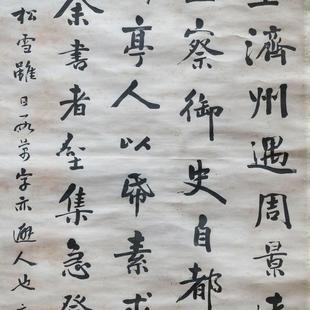 濟州遇周景
察御史自都
亭人以帋素求
余書者坌集急登
松雪雖日萬字亦避人也